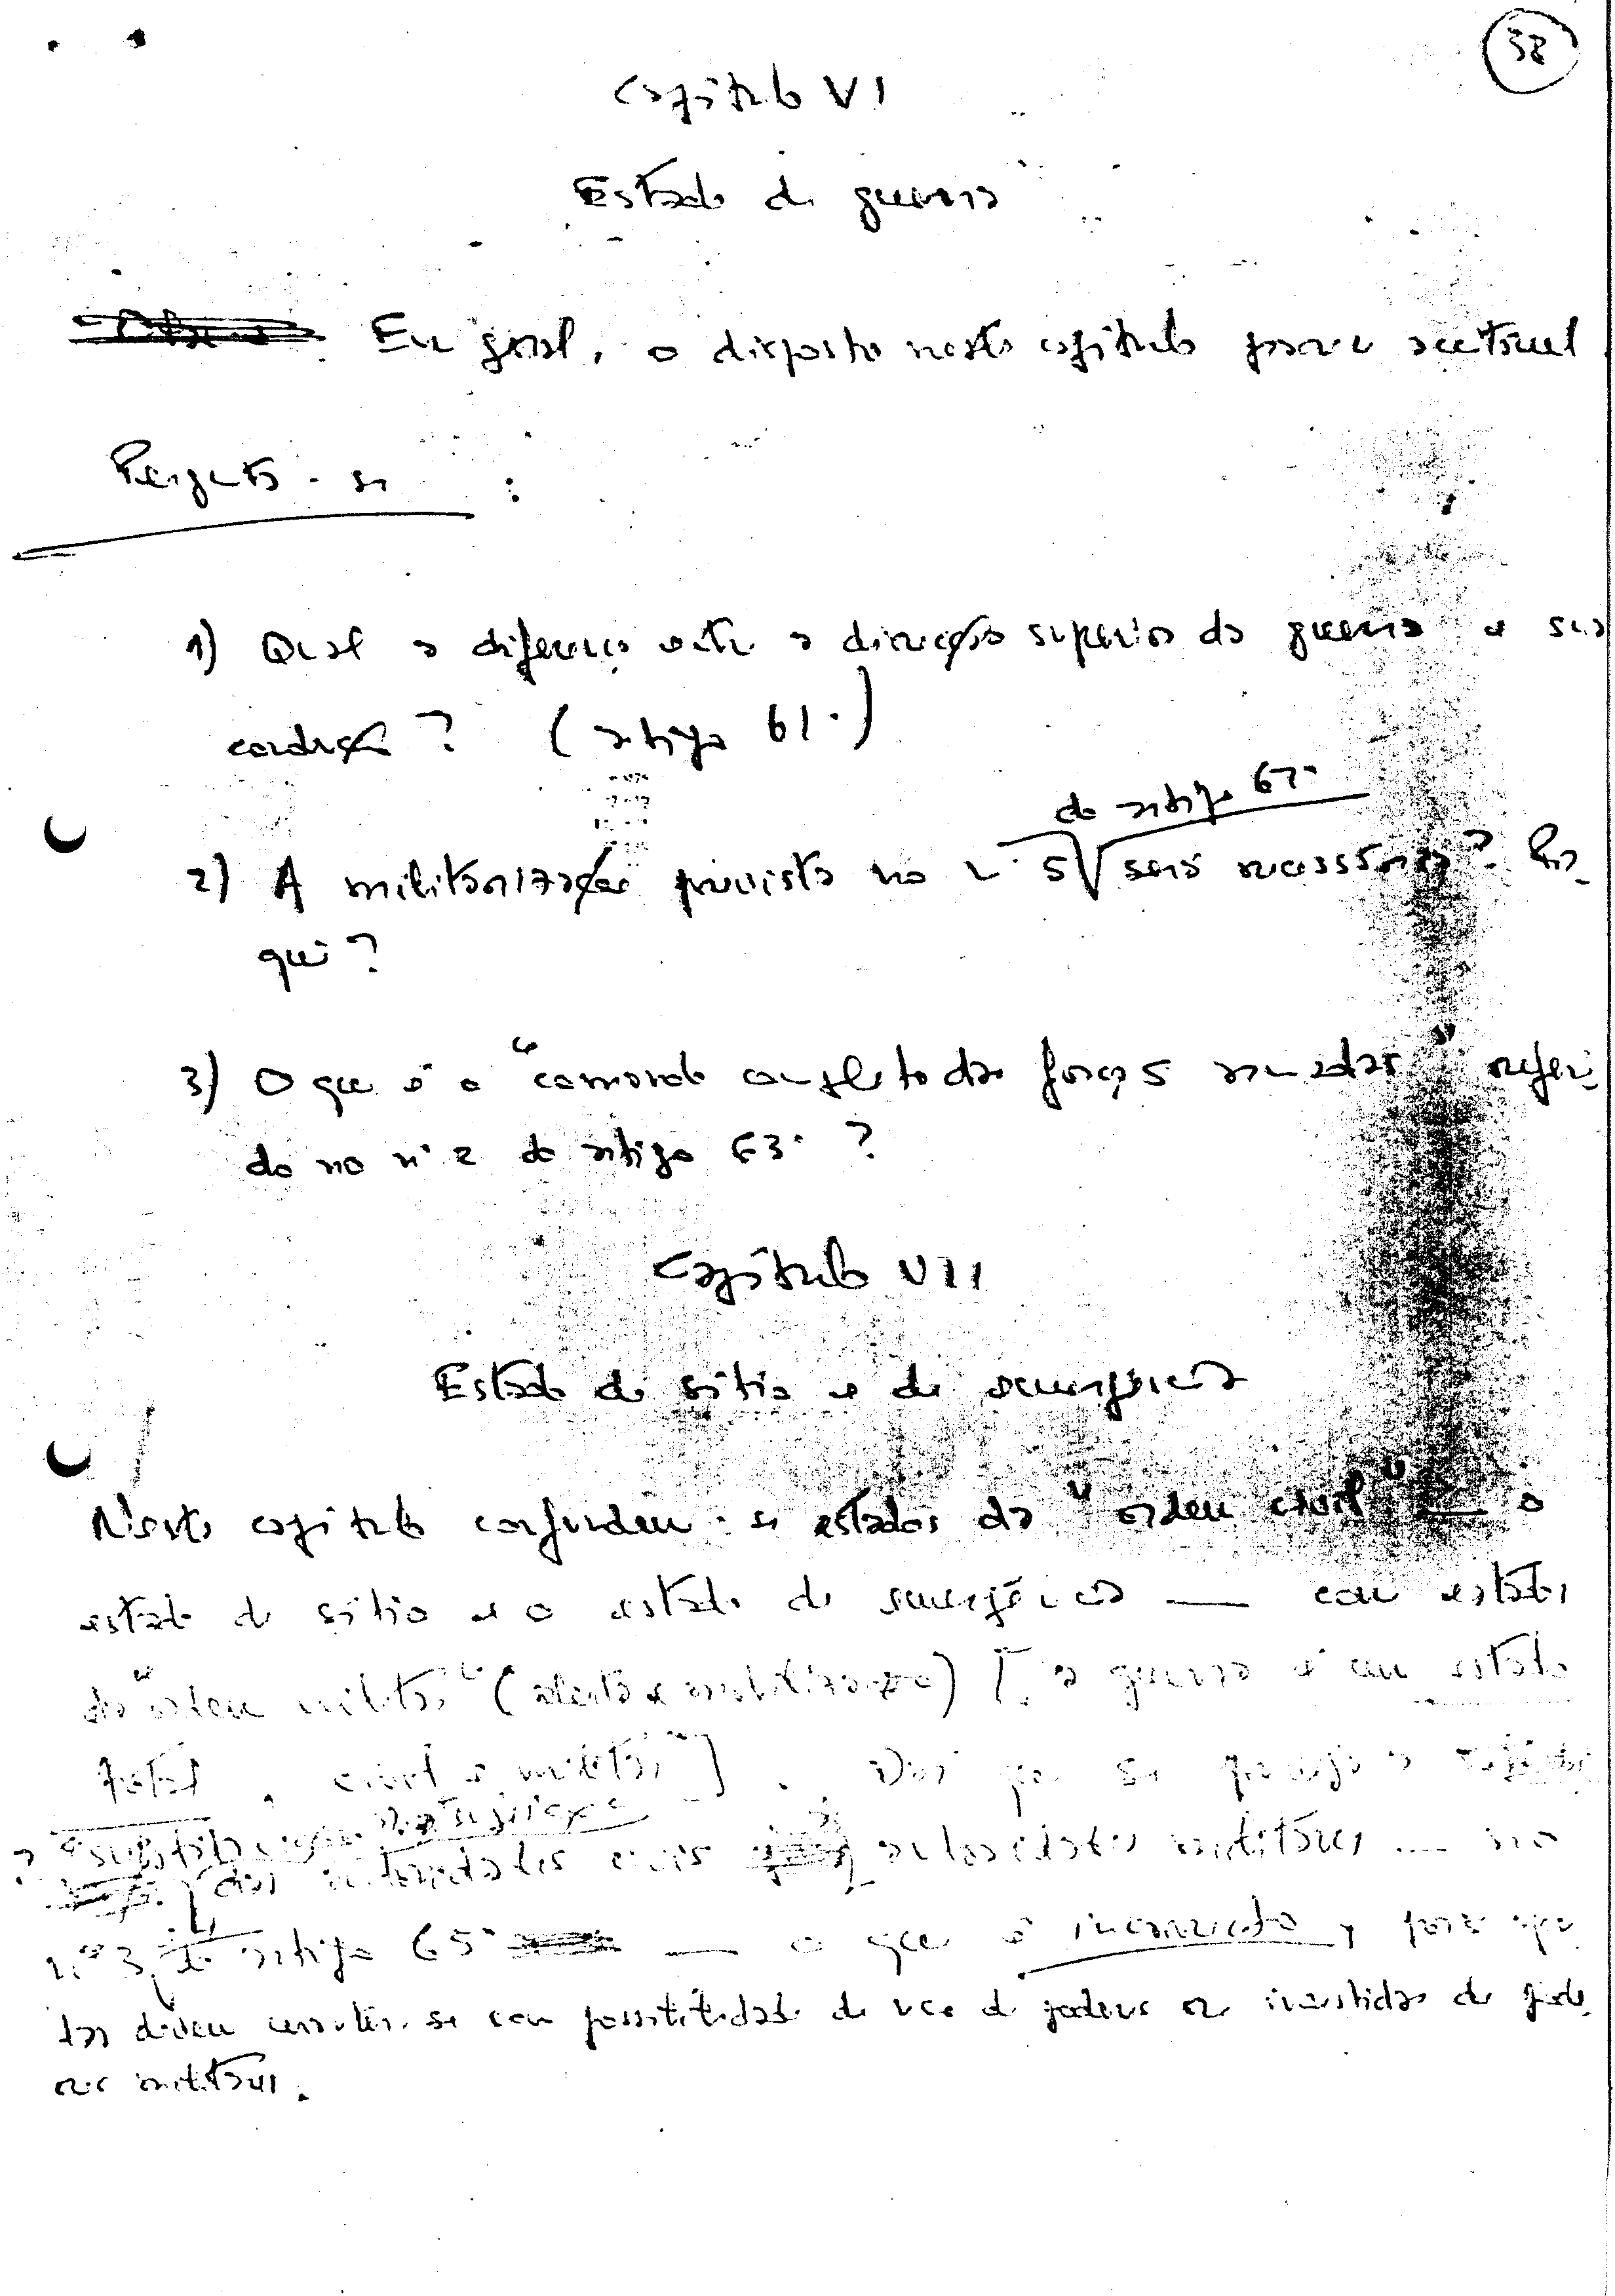 38
Capítulo VI
Estado de guerra
Em geral, o disposto neste capítulo parece aceitável
Pergunta-se :
1) Qual a diferença entre a direcção superior da guerra e sua
condução? (artigo 61.º)
do artigo 67.º
2) A militarização prevista no nº 5 será necessária? Por
quê?
3) O que é o "comando completo das forças armadas" referi-
do no nº 2 do artigo 63.º ?
Capítulo VII
Estado de sítio e de emergência
Neste capítulo confundem-se estados da "ordem civil" — o
estado de sítio e o estado de emergência — com estados
da "ordem militar" (alerta e mobilização) [a guerra é um estado
total, civil e militar]. Daí que se preveja a
substituição
? das autoridades civis autoridades militares — no
nº 3 do artigo 65.º — o que é incorrecto, pois aque-
las devem manter-se com possibilidade de uso de poderes ou investidas de pode-
res militares.